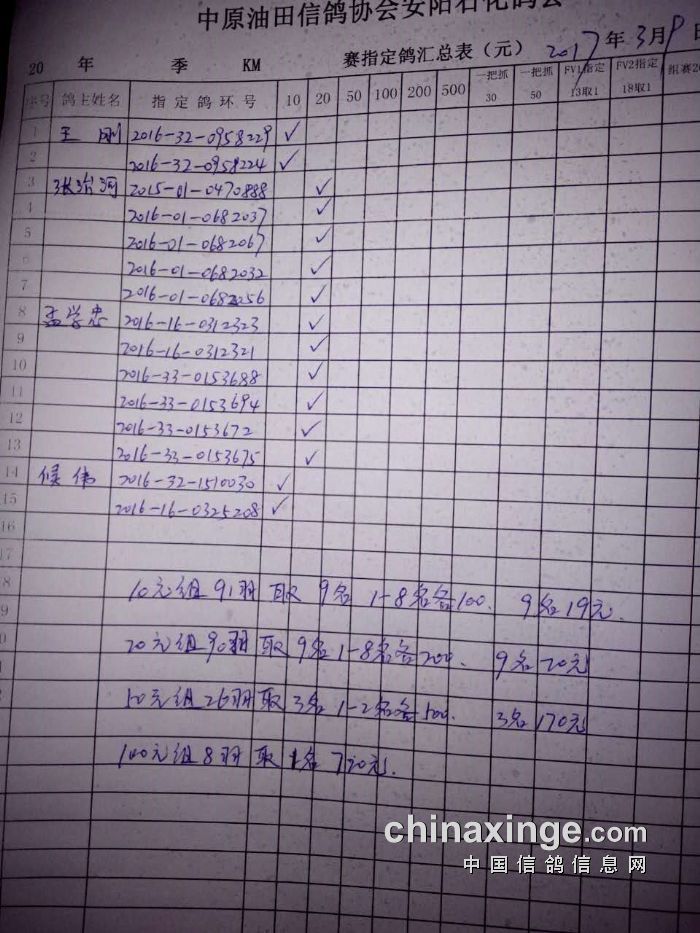 中原油田信鸽协会安阳石化鸽会
20 年 季 KM 赛指定鸽汇总表（元） 2017年3月9日
序号 鸽主姓名 指定鸽环号 10 20 50 100 200 500 一把抓30 一把抓50 FV1指定13取1 FV2指定18取1 组赛20
1 王刚 2016-32-0958229 ✓
2 2016-32-0958224 ✓
3 张治河 2015-01-0470888 ✓
4 2016-01-0682037 ✓
5 2016-01-0682067 ✓
6 2016-01-0682032 ✓
7 2016-01-0682056 ✓
8 孟学忠 2016-16-0312323 ✓
9 2016-16-0312321 ✓
10 2016-33-0153688 ✓
11 2016-33-0153694 ✓
12 2016-33-0153672 ✓
13 2016-33-0153675 ✓
14 候伟 2016-32-1510030 ✓
15 2016-16-0325208 ✓
16
17
8 10元组91羽取9名 1-8名各100. 9名19元.
9
0 20元组90羽取9名 1-8名各200. 9名20元
1
2 50元组26羽取3名 1-2名各500. 3名170元
100元组8羽取1名 720元.
chinaxinge.com
中国信鸽信息网